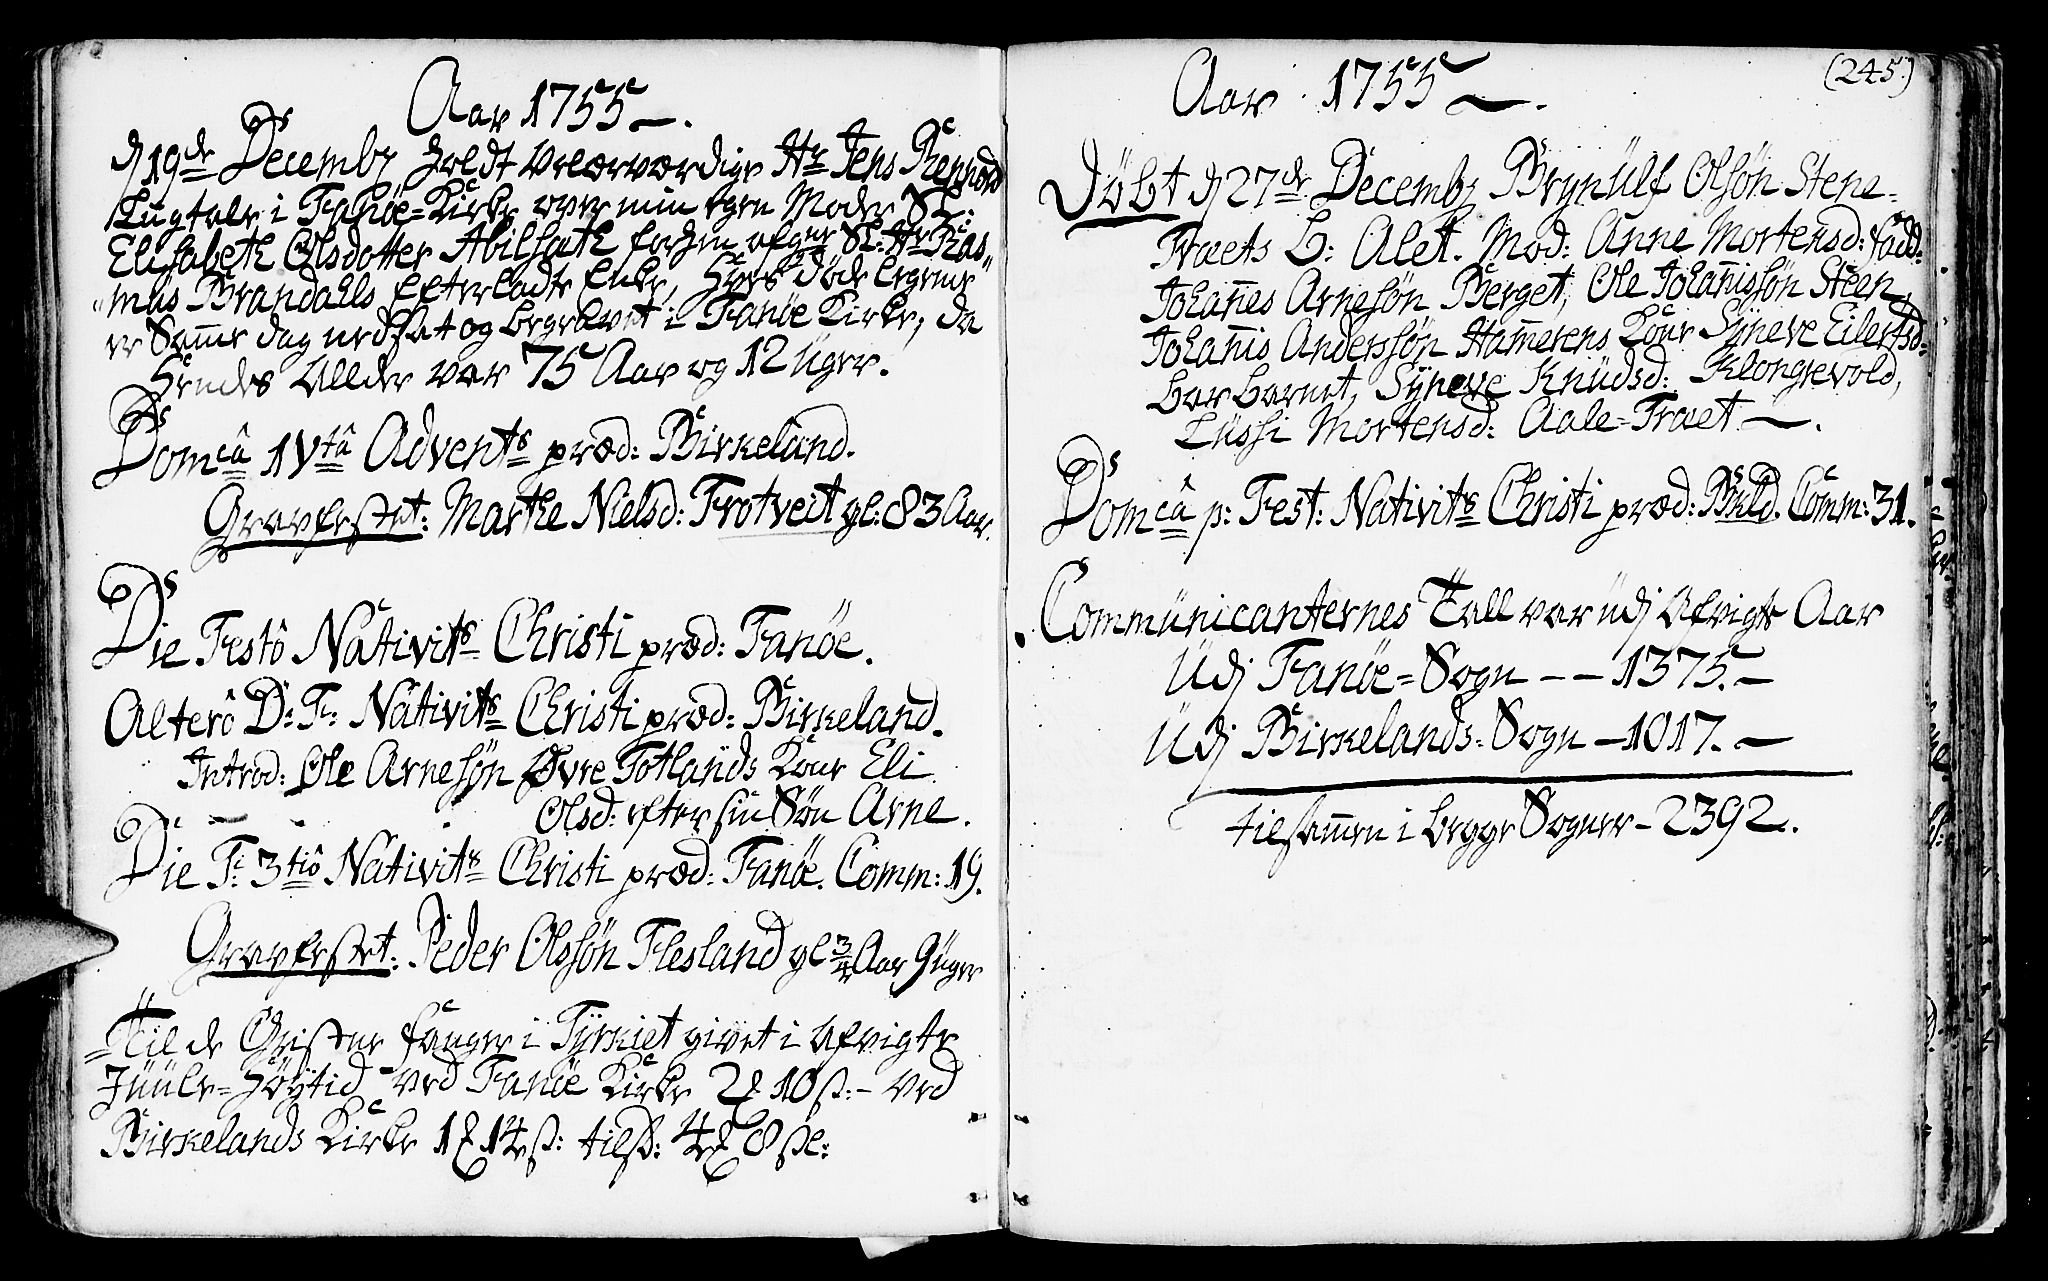 Aar 1755.
d 19de Decembr holdt Velærværdige Hr Jens Rennord
Liigtale i Fanöe-Kirke over min egen Moder Sl:
Elisabeth Olsdotter Abilseth forhen afgne Sl: Hr Ras
mus Brandahls Efterladte Enke, hvis döde legeme
er Samme dag nedsat og begravet i Fanöe Kirke, da
hendes Allder var 75 Aar og 12 Uger.
Domcâ IVtâ Advents præd: Birkeland.
Gravfæstet: Marthe Nielsd: Trotveit gl: 83 Aar.
Die Festô Nativits Christi præd: Fanöe.
Alterô D: F: Nativits Christi præd: Birkeland.
Introd: Ole Arnesön Övre Totlands Kone Eli
Olsd: efter sin Sön Arne.
Die F: 3tiô Nativits Christi præd: Fanöe. Comm: 19.
Gravfæstet: Peder Olssön Flesland gl 3/4 Aar 9 uger
Til de Christne fanger i Tyrkiet givet i Afvigte
Juule-Höytid ved Fanöe Kirke 2 10 ß:- ved
Birkelands Kirke 1 14 ß: tilß: 4 8 ßl:
(245)
Aar 1755.
Döbt d 27de Decembr Brynülf Olsön Stene-
Træets b: Alet. Mod: Anne Mortensd: fadd:
Johannes Arnesön Berget, Ole Johannissön Steen,
Johannis Anderssön Hammerens Kone Syneve Eilertsd:
bar barnet, Syneve Knüdsd: Klongrevold,
Lüssi Mortensd: Aale-Træet.
Domcâ p: Fest: Nativits Christi præd: Bkld. Comm: 31.
Communicanternes Tall var udj Afvigte Aar
Udj Fanöe=Sogn -- 1375.-
Udj Birkelands=Sogn - 1017.-
tilsammen i begge Sogner - 2392.